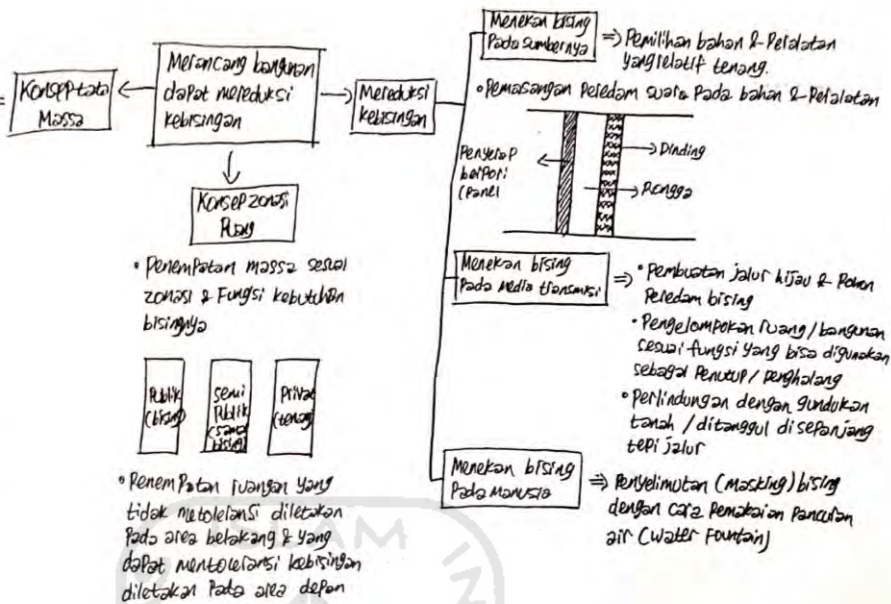 =
Konsep tata
Massa
Merancang bangunan
dapat mereduksi
kebisingan
Mereduksi
kebisingan
Konsep zonasi
Ruang
• Penempatan massa sesuai
zonasi & Fungsi kebutuhan
bisingnya
Publik
(bising)
Semi
Publik
bising)
Privat
(tenang)
• Penempatan ruangan yang
tidak metoleransi diletakan
Pada area belakang & yang
dapat mentoleransi kebisingan
diletakan Pada area depan
Menekan bising
Pada sumbernya
⇒ Pemilihan bahan & Peralatan
yang relatif tenang.
• Pemasangan Peredam suara Pada bahan & Peralatan
Penyerap
berpori
(Panel
Dinding
Rongga
Menekan bising
Pada Media transmisi
⇒ • Pembuatan jalur hijau & Pohon
Peredam bising
• Pengelompokan ruang/bangunan
sesuai fungsi yang bisa digunakan
sebagai Penutup/penghalang
• Perlindungan dengan gundukan
tanah / ditanggul disepanjang
tepi jalur
Menekan bising
Pada Manusia
⇒ Penyelimutan (masking) bising
dengan cara Pemakaian Pancuran
air (Water Fountain)
ISLAM